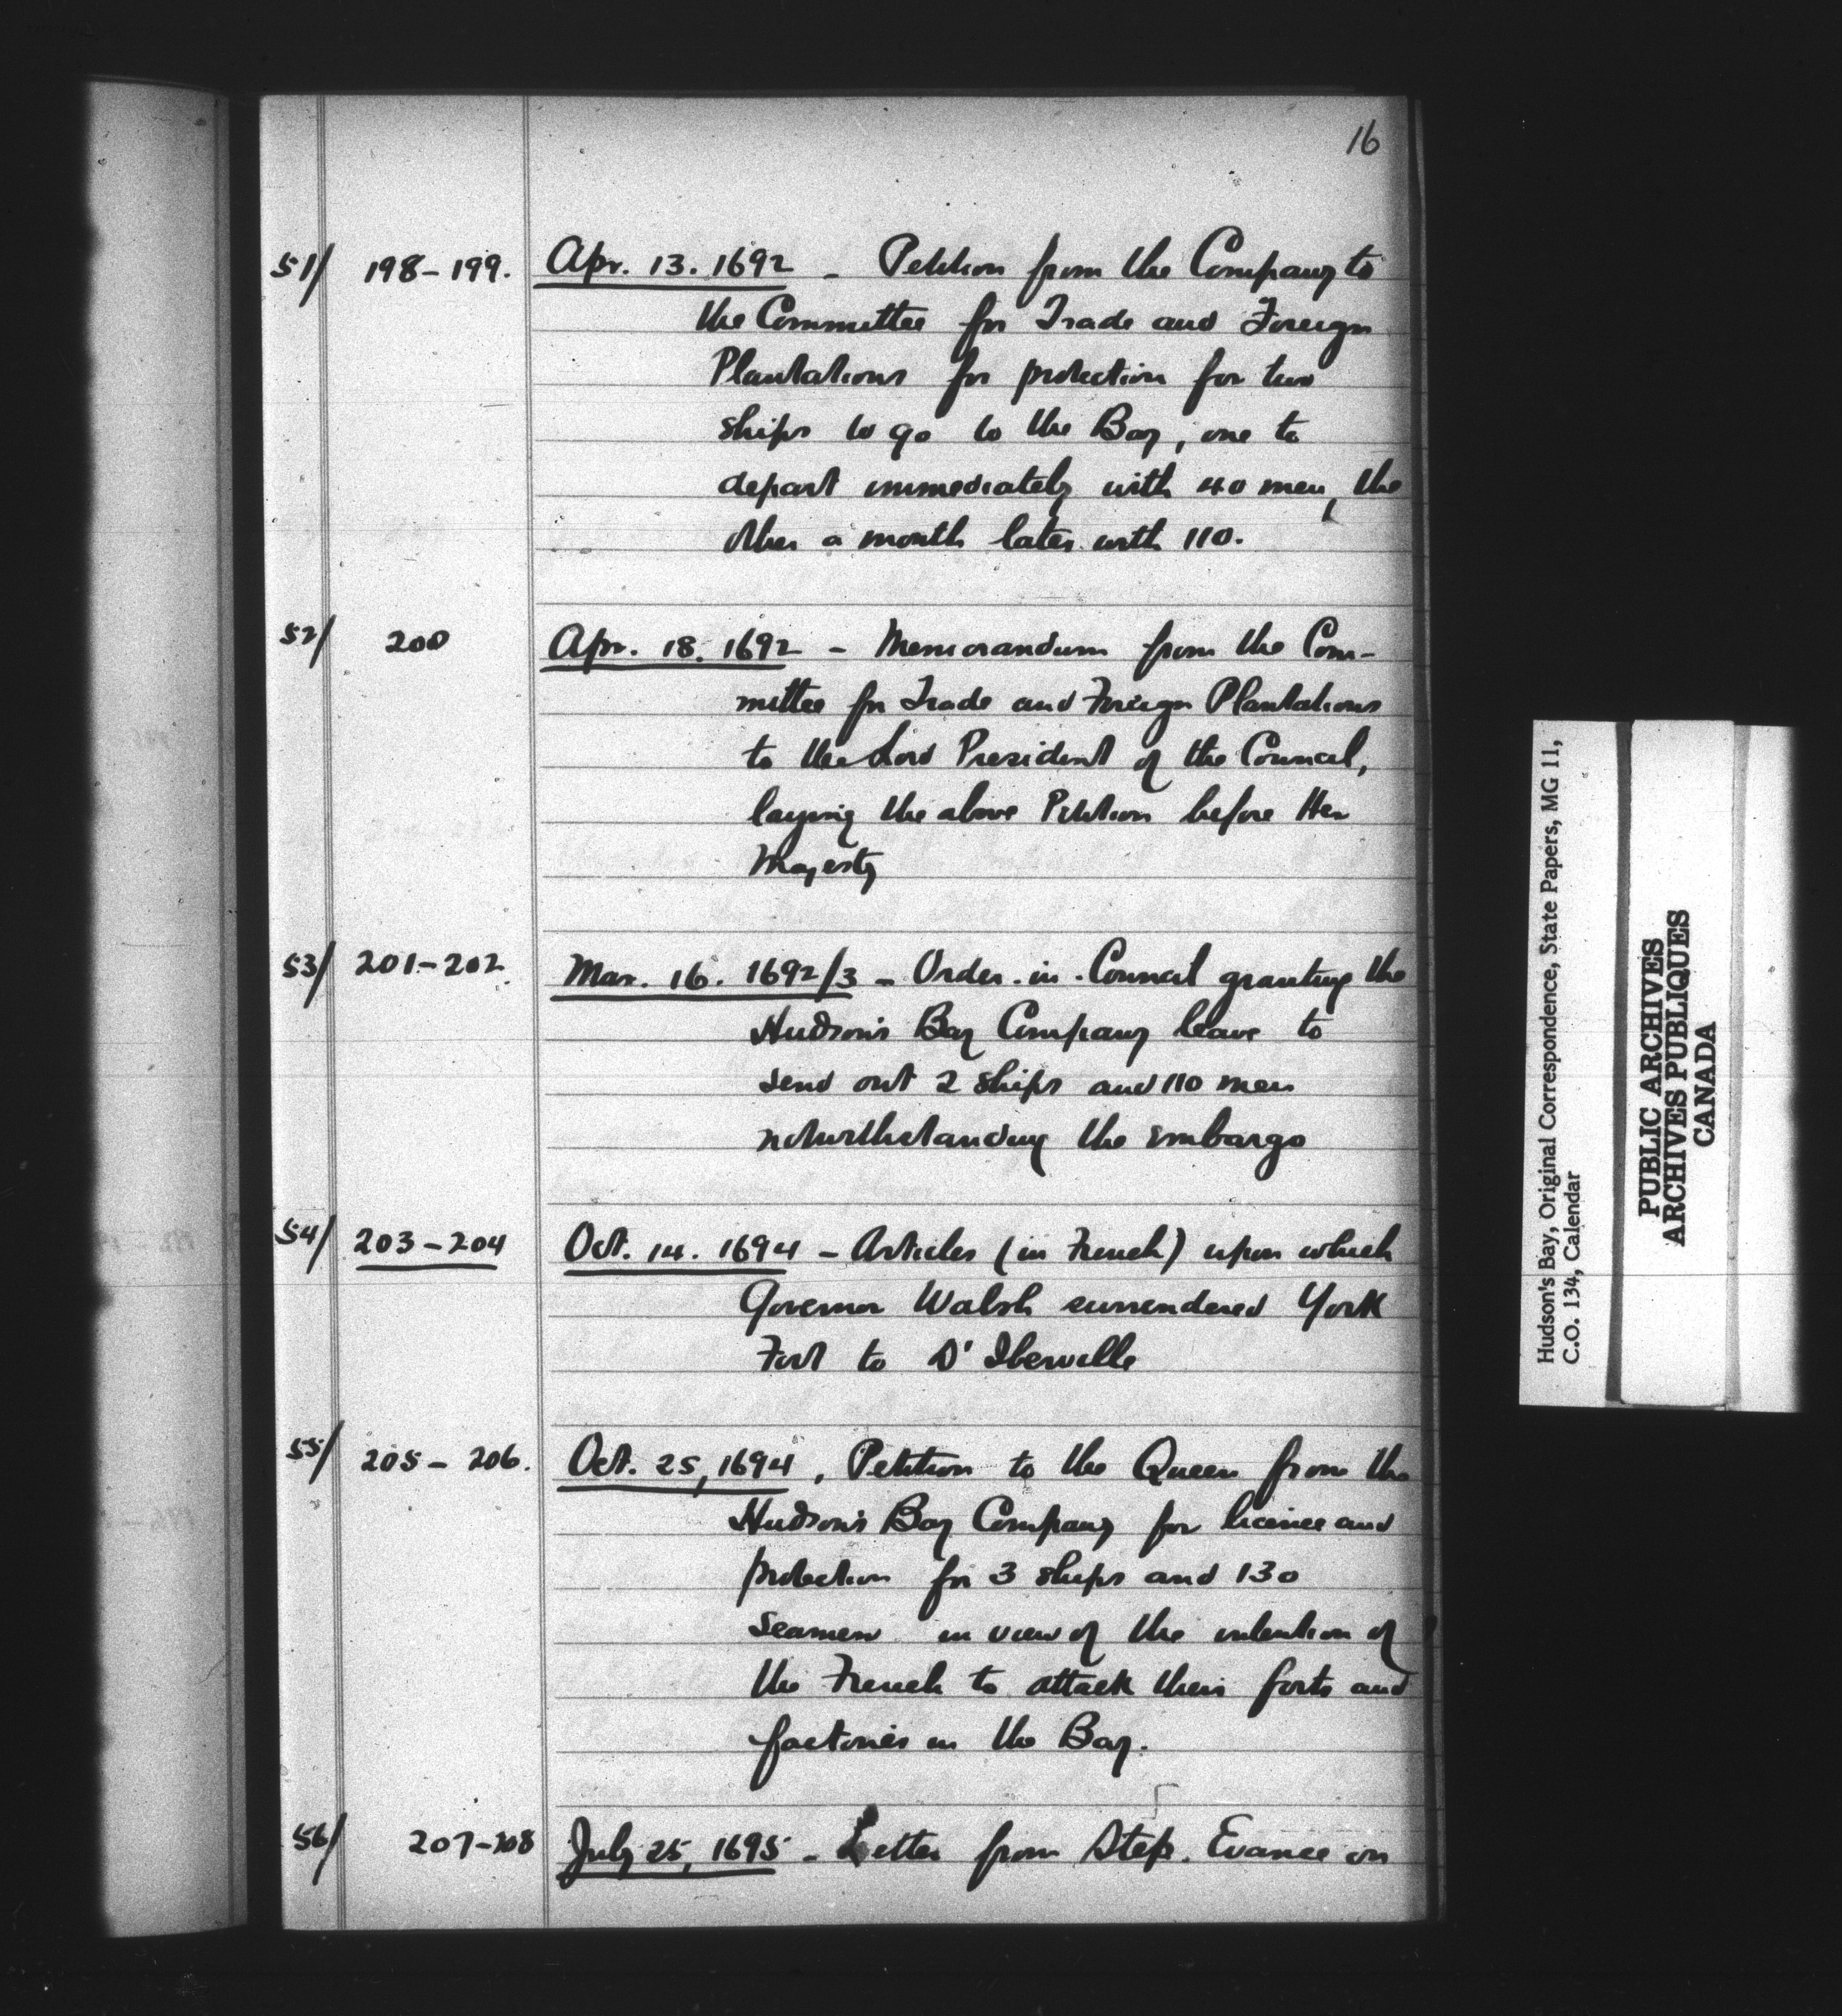 16
51/ 198-199. Apr. 13. 1692 - Petition from the Company to
the Committee for Trade and Foreign
Plantations for protection for two
ships to go to the Bay, one to
depart immediately with 40 men, the
other a month later with 110.
52/ 200 Apr. 18. 1692 - Memorandum from the Com-
mittee for Trade and Foreign Plantations
to the Lord President of the Council,
laying the above Petition before Her
Majesty
53/ 201-202 Mar. 16. 1692/3 - Order-in-Council granting the
Hudson's Bay Company leave to
send out 2 ships and 110 men
notwithstanding the embargo
54/ 203-204 Oct. 14. 1694 - Articles (in French) upon which
Governor Walsh surrendered York
Fort to D'Iberville
55/ 205-206. Oct. 25, 1694, Petition to the Queen from the
Hudson's Bay Company for licence and
protection for 3 ships and 130
seamen in view of the intention of
the French to attack their forts and
factories in the Bay.
56/ 207-208 July 25, 1695 - Letter from Step. Evance on
Hudson's Bay, Original Correspondence, State Papers, MG 11,
C.O. 134, Calendar
PUBLIC ARCHIVES
ARCHIVES PUBLIQUES
CANADA